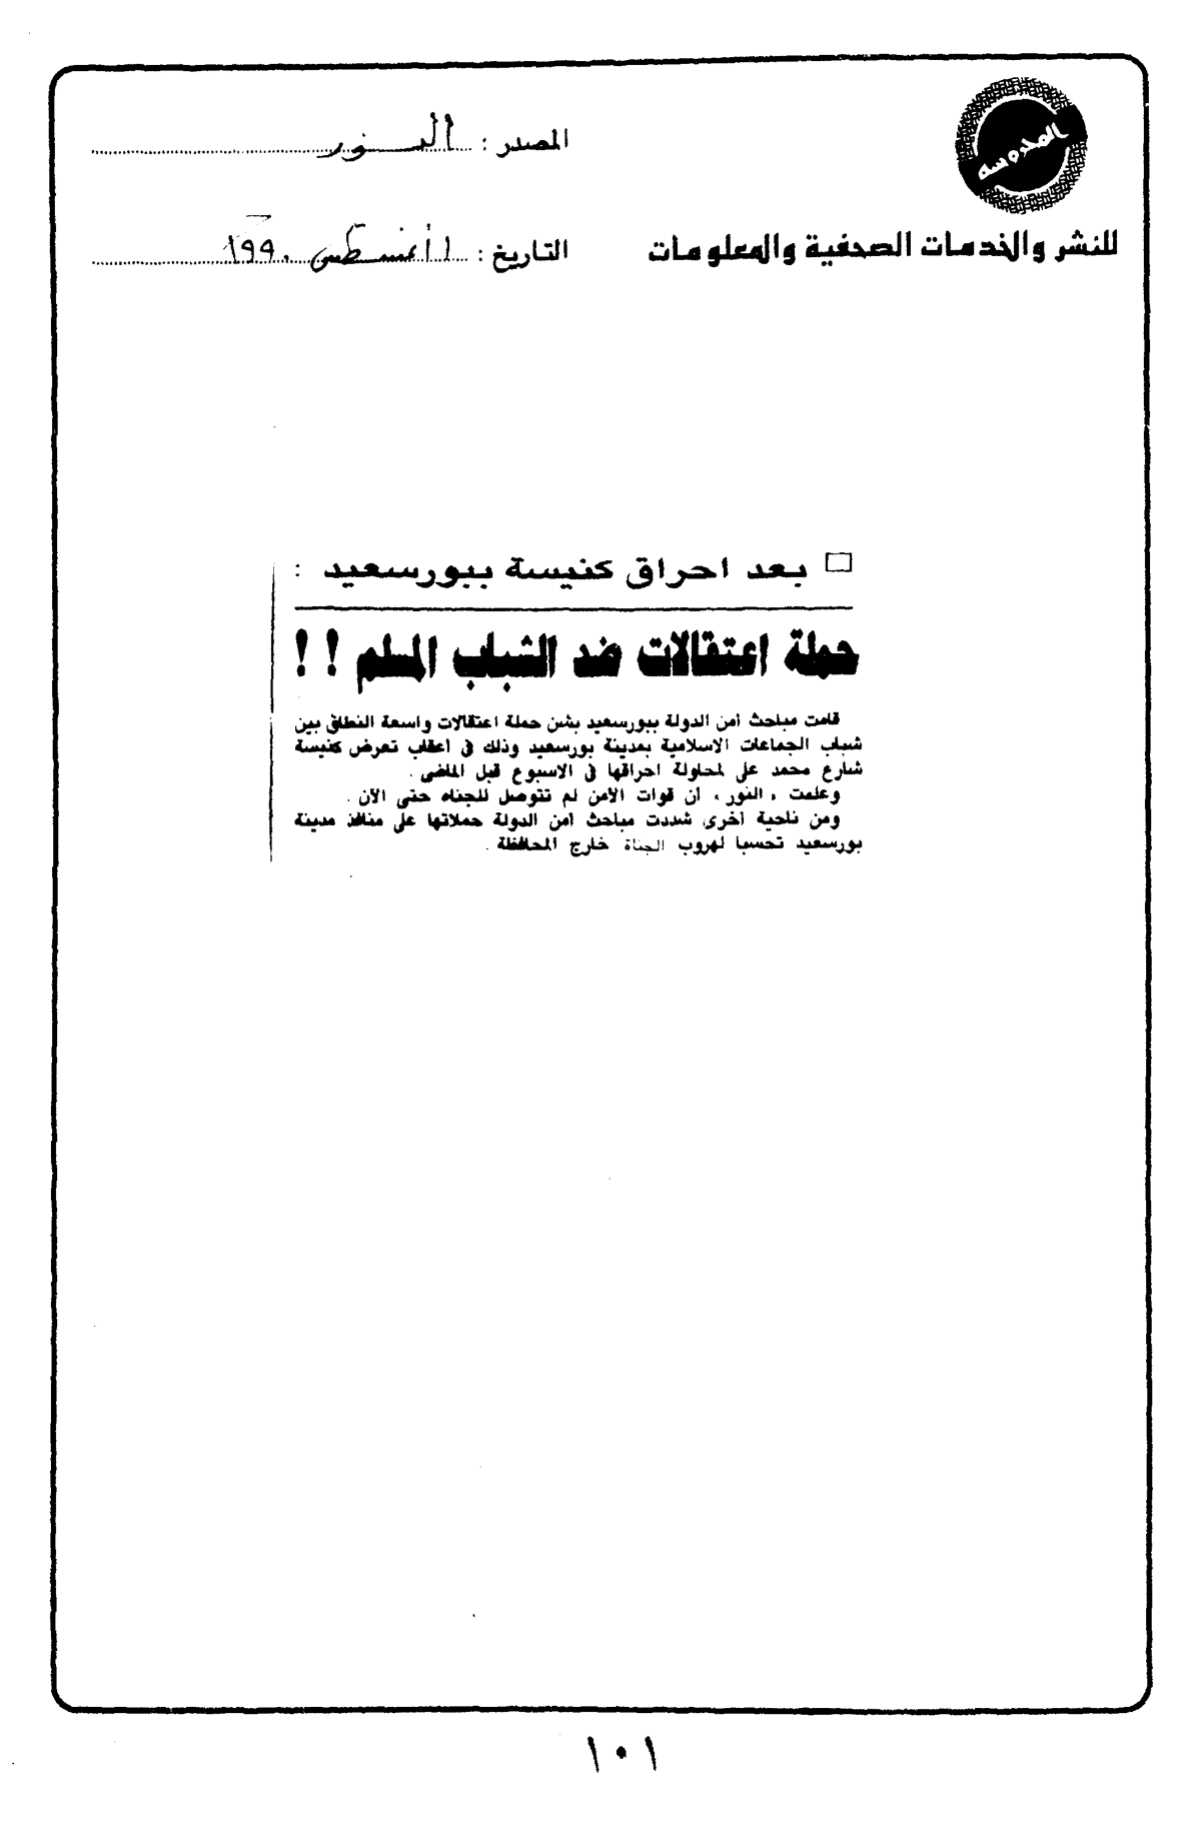 المحروسة
المصدر : النور
للنشر والخدمات الصحفية والمعلومات
التاريخ : ١ أغسطس ١٩٩٠
بعد احراق كنيسة ببورسعيد :
حملة اعتقالات ضد الشباب المسلم ! !
قامت مباحث أمن الدولة ببورسعيد بشن حملة اعتقالات واسعة النطاق بين
شباب الجماعات الاسلامية بمدينة بورسعيد وذلك فى أعقاب تعرض كنيسة
شارع محمد على لمحاولة احراقها فى الاسبوع قبل الماضى .
وعلمت « النور » أن قوات الأمن لم تتوصل للجناه حتى الآن .
ومن ناحية أخرى شددت مباحث أمن الدولة حملاتها على منافذ مدينة
بورسعيد تحسبا لهروب الجناة خارج المحافظة .
١٠١